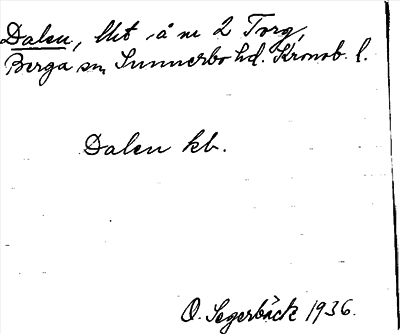 Dalen, lht å nr 2 Torg,
Berga sn, Sunnerbo hd. Kronob. l.
Dalen kb.
O. Segerbäck 1936.